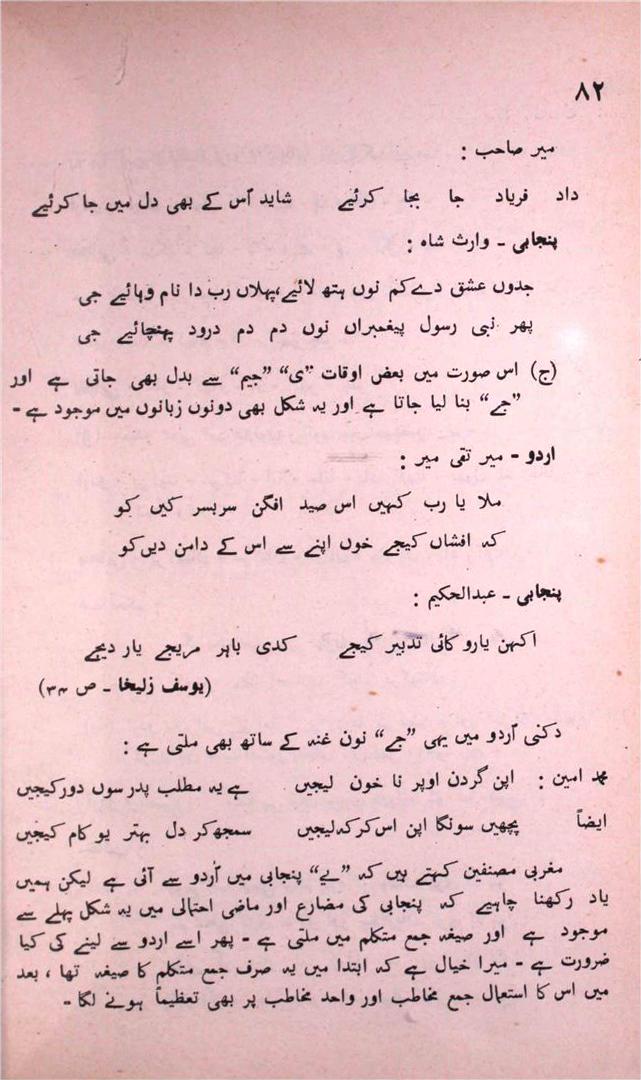 ۸۲
میر صاحب :
داد فریاد جا بجا کرئیے شاید اُس کے بھی دل میں جا کرئیے
پنجابی - وارث شاہ :
جدوں عشق دے کم نوں ہتھ لائیے، پہلاں رب دا نام وہائیے جی
پھر نبی رسول پیغمبراں نوں دم دم درود پہنچائیے جی
(ج) اس صورت میں بعض اوقات ”ی“ ”جیم“ سے بدل بھی جاتی ہے اور
”جے“ بنا لیا جاتا ہے اور یہ شکل بھی دونوں زبانوں میں موجود ہے -
اردو - میر تقی میر :
ملا یا رب کہیں اس صید افگن سربسر کیں کو
کہ افشاں کیجے خوں اپنے سے اس کے دامن دیں کو
پنجابی - عبدالحکیم :
اکہن یارو کائی تدبیر کیجے کدی باہر مریجے یار دیجے
(یوسف زلیخا - ص ۳۴)
دکنی اُردو میں یہی ”جے“ نون غنہ کے ساتھ بھی ملتی ہے :
محمد امین : اپن گردن اوپر نا خون لیجیں ہے یہ مطلب پدر سوں دور کیجیں
ایضاً پچھیں سونگا اپن اس کر کہ لیجیں سمجھ کر دل بہتر یو کام کیجیں
مغربی مصنفین کہتے ہیں کہ ”یے“ پنجابی میں اُردو سے آئی ہے لیکن ہمیں
یاد رکھنا چاہیے کہ پنجابی کی مضارع اور ماضی احتمالی میں یہ شکل پہلے سے
موجود ہے اور صیغہ جمع متکلم میں ملتی ہے - پھر اسے اردو سے لینے کی کیا
ضرورت ہے - میرا خیال ہے کہ ابتدا میں یہ صرف جمع متکلم کا صیغہ تھا ، بعد
میں اس کا استعمال جمع مخاطب اور واحد مخاطب پر بھی تعظیماً ہونے لگا -